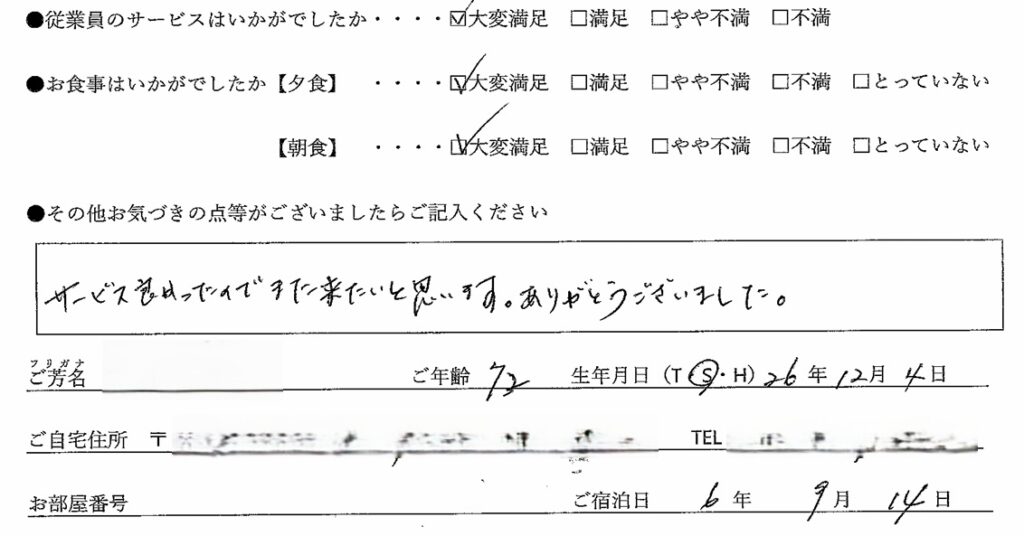 ●従業員のサービスはいかがでしたか・・・・☑大変満足 □満足 □やや不満 □不満
●お食事はいかがでしたか【夕食】 ・・・・☑大変満足 □満足 □やや不満 □不満 □とっていない
【朝食】 ・・・・☑大変満足 □満足 □やや不満 □不満 □とっていない
●その他お気づきの点等がございましたらご記入ください
サービス良かったのでまた来たいと思います。ありがとうございました。
フリガナ
ご芳名 ご年齢 72 生年月日（T・S・H）26年12月4日
ご自宅住所 〒 TEL
お部屋番号 ご宿泊日 6年 9月 14日